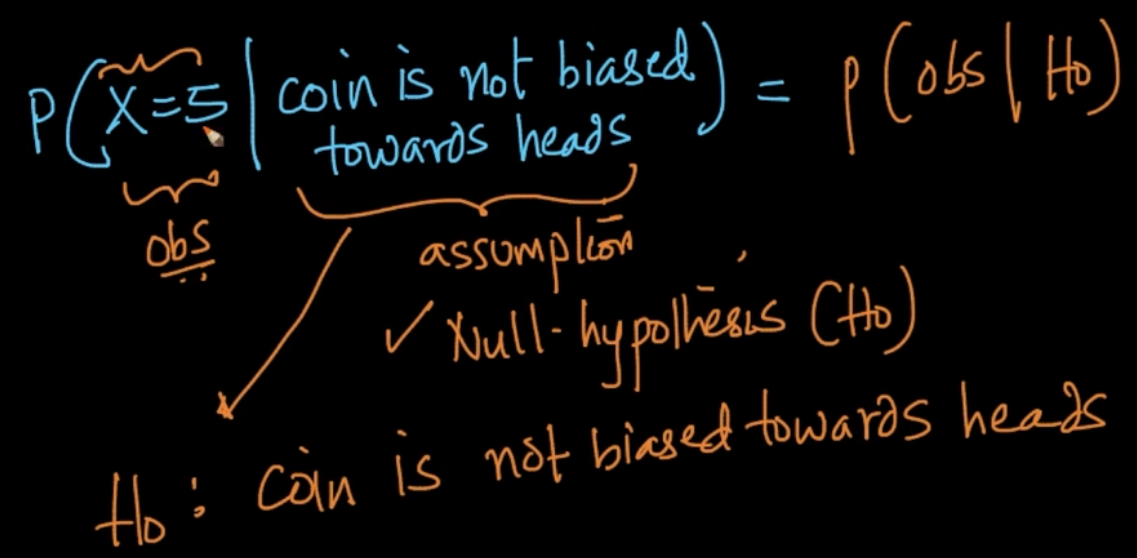 P(X=5 | coin is not biased towards heads) = P(obs | Ho)
obs
assumption
✓ Null-hypothesis (Ho)
Ho: Coin is not biased towards heads